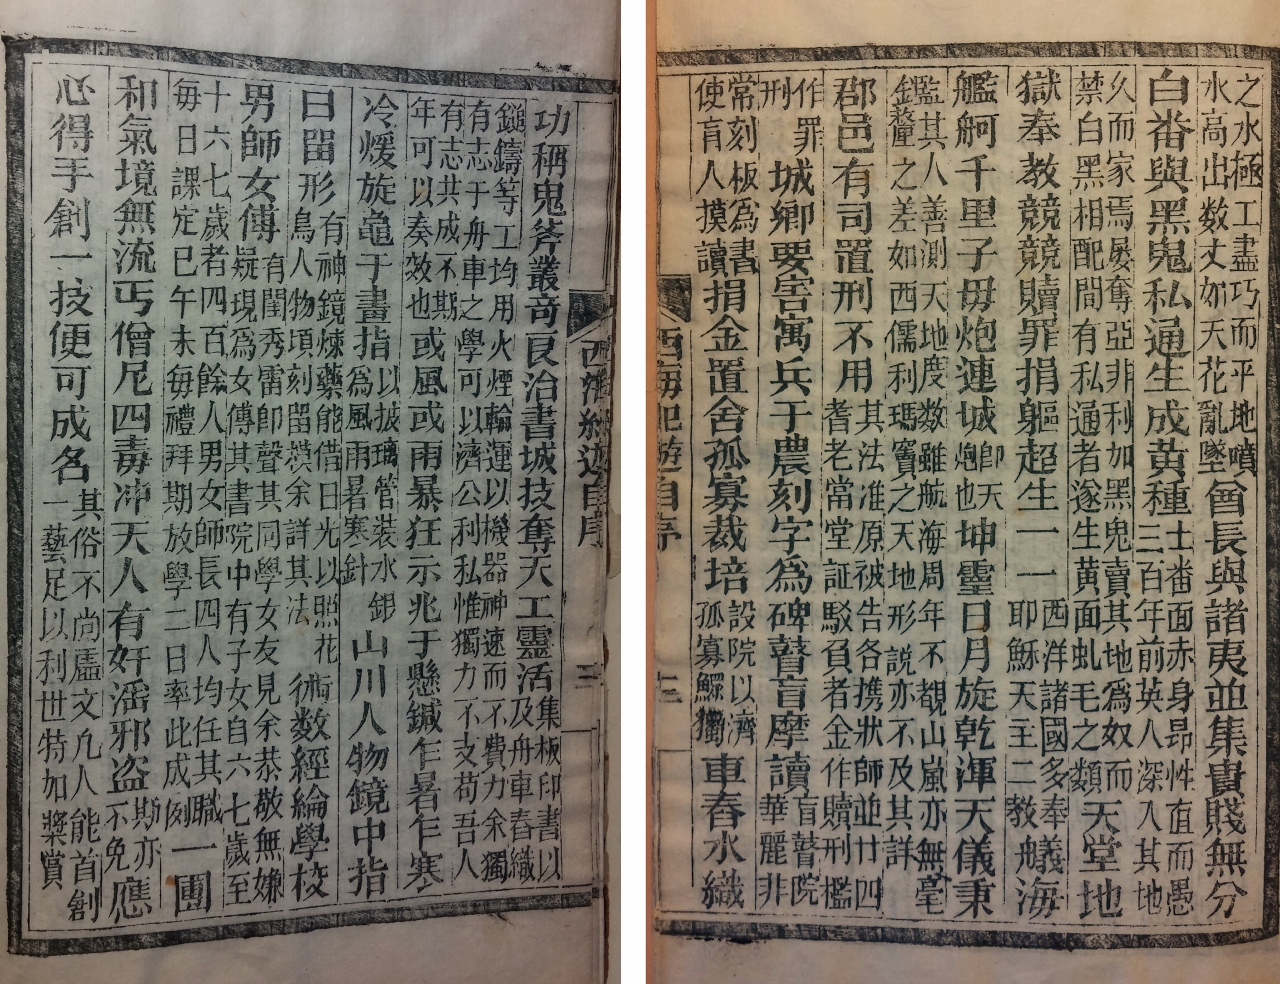 之水極工盡巧而平地噴水高出数丈如天花亂墜酋長與諸夷並集貴賤無分
白番與黑鬼私通生成黃種士番面赤身昂性直而愚三百年前英人深入其地
久而家焉屡奪亞非利加黑鬼賣其地為奴而禁白黑相配間有私通者遂生黃面虬毛之類天堂地
獄奉教競競贖罪捐軀超生一一西洋諸國多奉耶穌天主二教艤海
艦舸千里子毋炮連城即天炮也坤靈日月旋乾渾天儀秉
鑑其人善測天地度数雖航海周年不覩山嵐亦無毫釐之差如西儒利瑪竇之天地形説亦不及其詳
郡邑有司置刑不用其法准原被告各携狀師並廿四耆老常堂証駁負者金作贖刑檻
作罪刑城鄉要害寓兵于農刻字為碑瞽盲摩讀盲瞽院華麗非
常刻板為書使盲人摸讀捐金置舍孤寡栽培設院以濟孤寡鰥獨車舂水織
西海紀遊自序 三
西海紀遊自序 三
功稱鬼斧叢奇艮治書城技奪天工靈活集板印書以及舟車舂織
鎚鑄等工均用火煙輪運以機器神速而不費力余獨有志于舟車之學可以濟公利私惟獨力不支苟吾人
有志共成不期年可以奏效也或風或雨暴狂示兆于懸鍼乍暑乍寒
冷煖旋龜于畫指以玻璃管裝水銀為風雨暑寒針山川人物鏡中指
日留形有神鏡煉藥能借日光以照花鳥人物頃刻留模余詳其法術数經綸學校
男師女傅有閨秀雷即聲其同學女友見余恭敬無嫌疑現為女傅其書院中有子女自六七歲至
十六七歲者四百餘人男女師長四人均任其職每日課定巳午未每禮拜期放學二日率此成例一團
和氣境無流丐僧尼四毒冲天人有奸滛邪盗斯亦不免應
心得手創一技便可成名其俗不尚虛文凡人能首創一藝足以利世特加獎賞